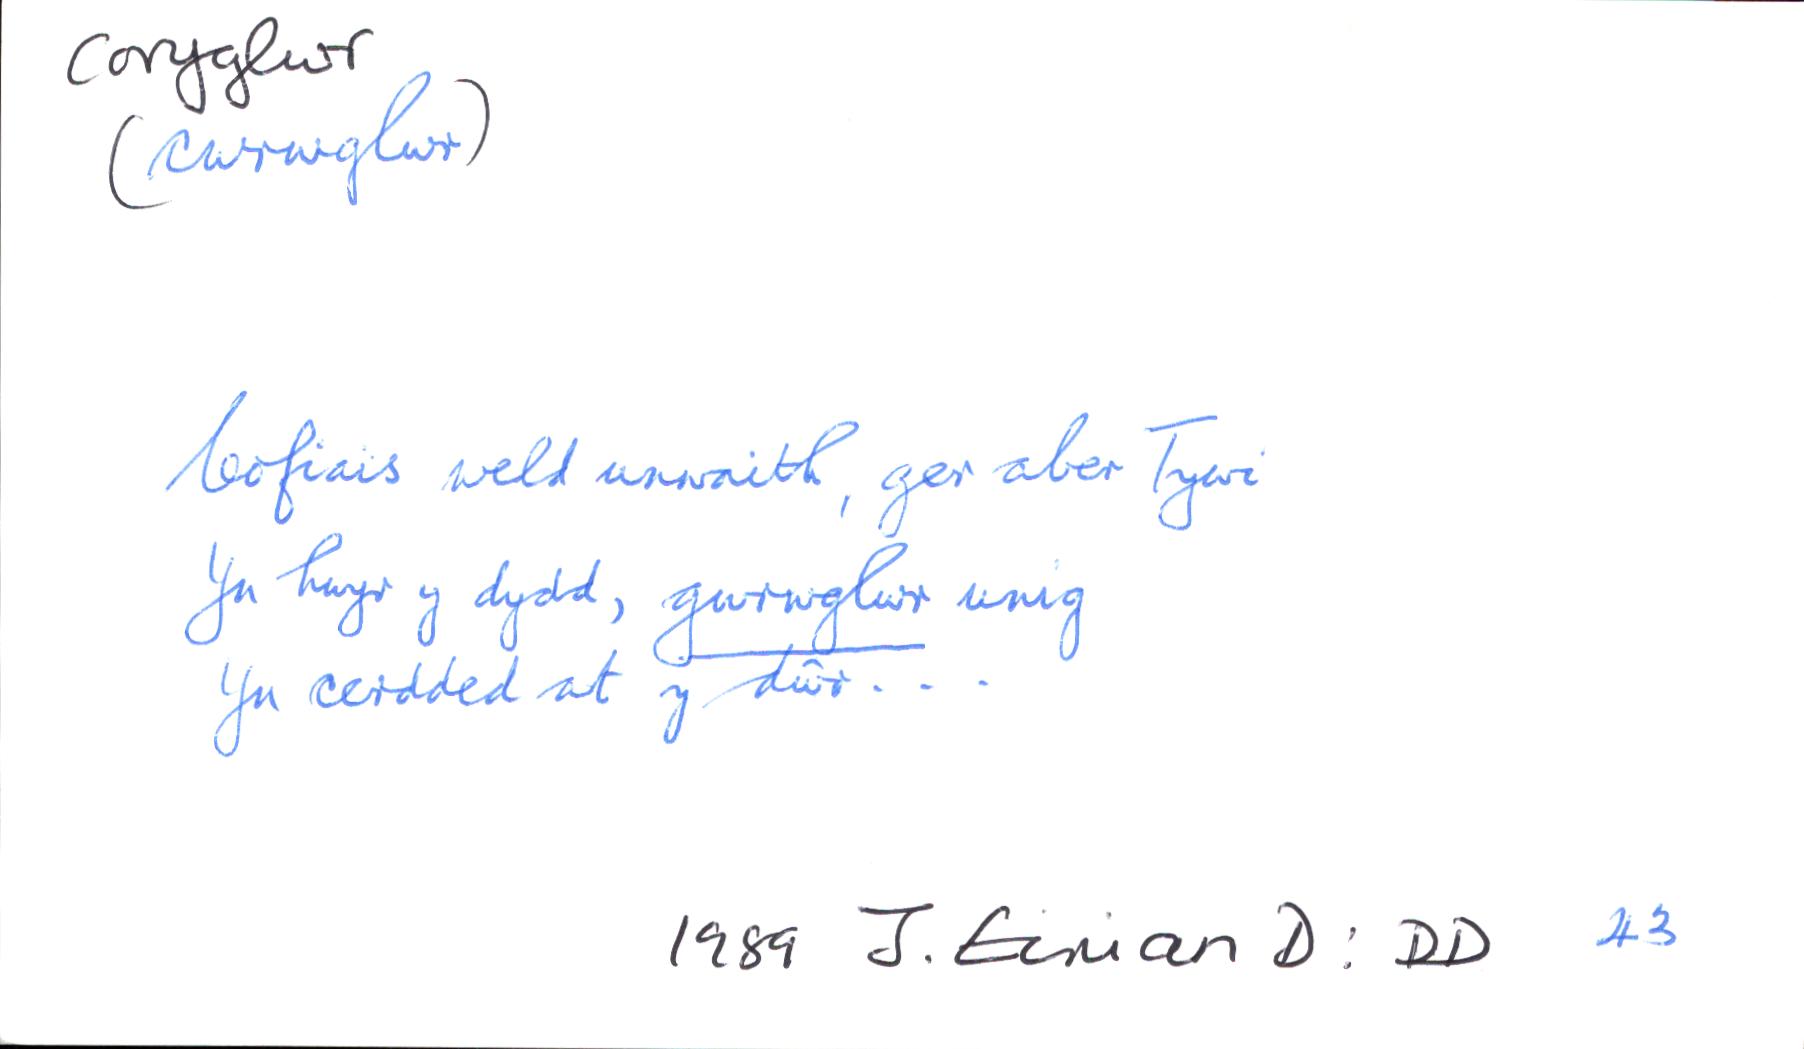 coryglwr
(cwrwglwr)
Cofiais weld unwaith, ger aber Tywi
Yn hwyr y dydd, gwrwglwr unig
Yn cerdded at y dŵr . . .
1989 J. Eirian D: DD 43